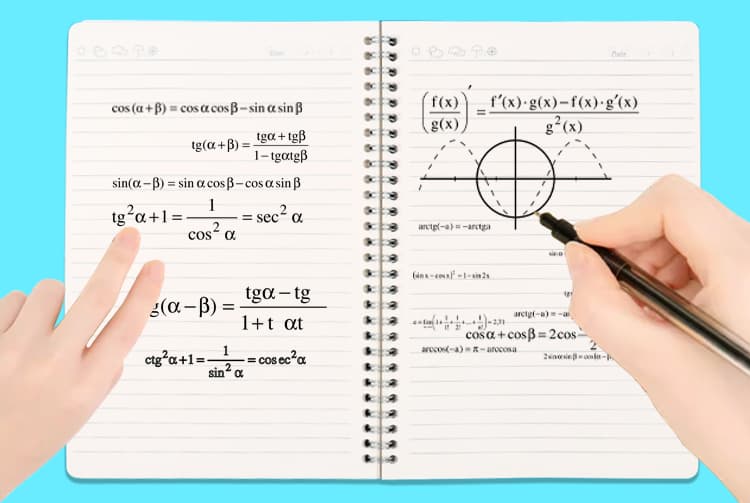 cos(α+β) = cosαcosβ−sinαsinβ
tg(α+β) = (tgα+tgβ)/(1−tgαtgβ)
sin(α−β) = sinαcosβ−cosαsinβ
tg²α+1 = 1/cos²α = sec²α
(α−β) = (tgα−tg)/(1+t αt)
ctg²α+1 = 1/sin²α = cosec²α
Date
(f(x)/g(x))′ = (f′(x)·g(x)−f(x)·g′(x))/g²(x)
arctg(−a) = −arctga
sin α
(sin x − cos x)² = 1 − sin 2x
arctg(−a) = −a
cosα+cosβ = 2cos
2
arccos(−a) = π − arccosa
2sinαsinβ = cos(α−β